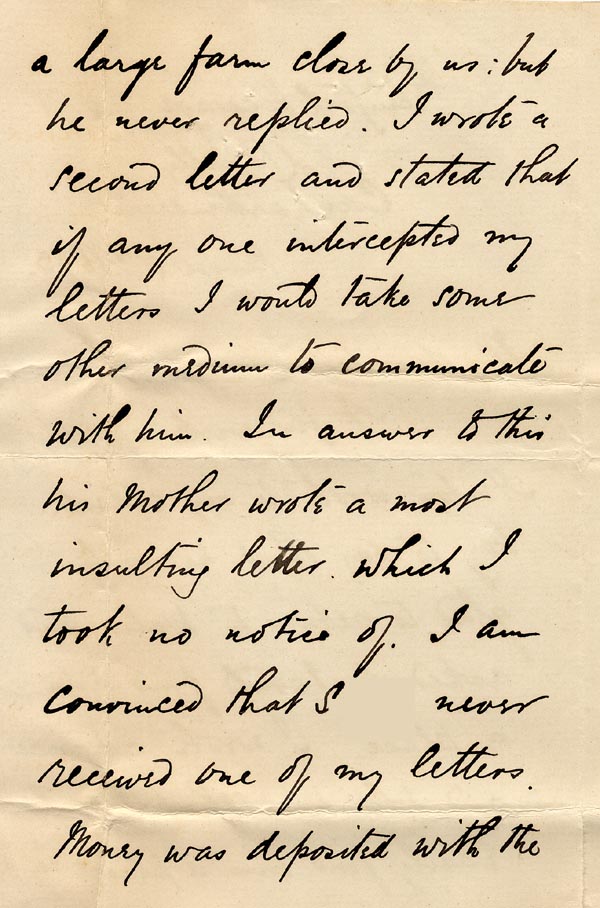 a large farm close by us: but
he never replied. I wrote a
second letter and stated that
if any one intercepted my
letters I would take some
other medium to communicate
with him. In answer to this
his Mother wrote a most
insulting letter. which I
took no notice of. I am
convinced that S never
received one of my letters.
Money was deposited with the